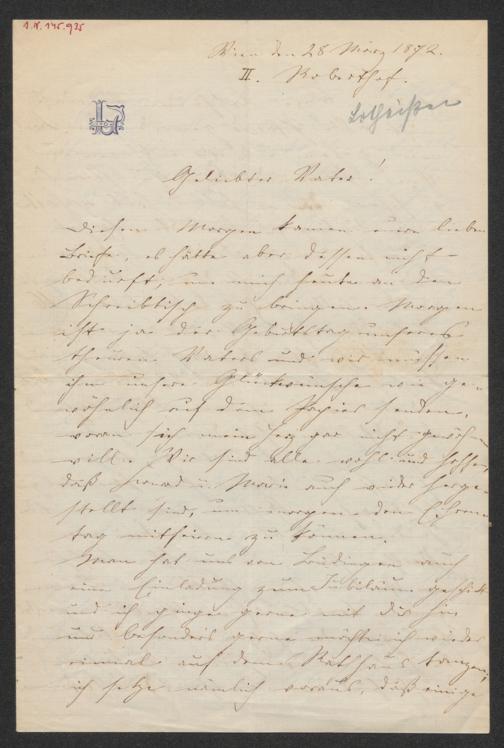 I.N. 145.935
Wien den 28 März 1872.
II. Roberthof.
Lotheißen
Geliebter Vater!
Diesen Morgen kamen eure lieben
Briefe, es hätte aber dessen nicht
bedurft, um mich heute an den
Schreibtisch zu bringen. Morgen
ist ja der Geburtstag unseres
theuren Vaters und wir müssen
ihm unsere Glückwünsche wie ge-
wöhnlich auf dem Papier senden,
woran sich mein Herz gar nicht gewöhnen
will. Wir sind alle wohl und hoffen,
daß u. Marie auch wieder herge-
stellt sind, um morgen den Ehren-
tag mitfeiern zu können.
Man hat uns von Büdingen auch
eine Einladung zum Jubiläum geschickt
und ich ginge gerne mit Dir hin
und besonders gerne möchte ich wieder
einmal auf dem Rathhaus tanzen,
ich setze nämlich voraus, daß einige